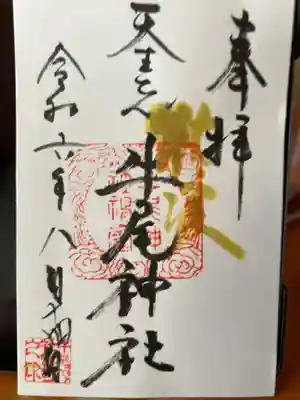 奉拝
天王さん
牛尾神社
令和六年八月十四日